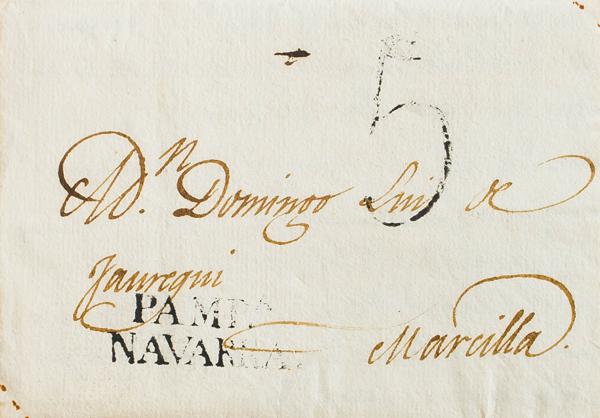 5
A D.n Domingo Luis de
Jauregui
PAMP
NAVARRA.
Marcilla.